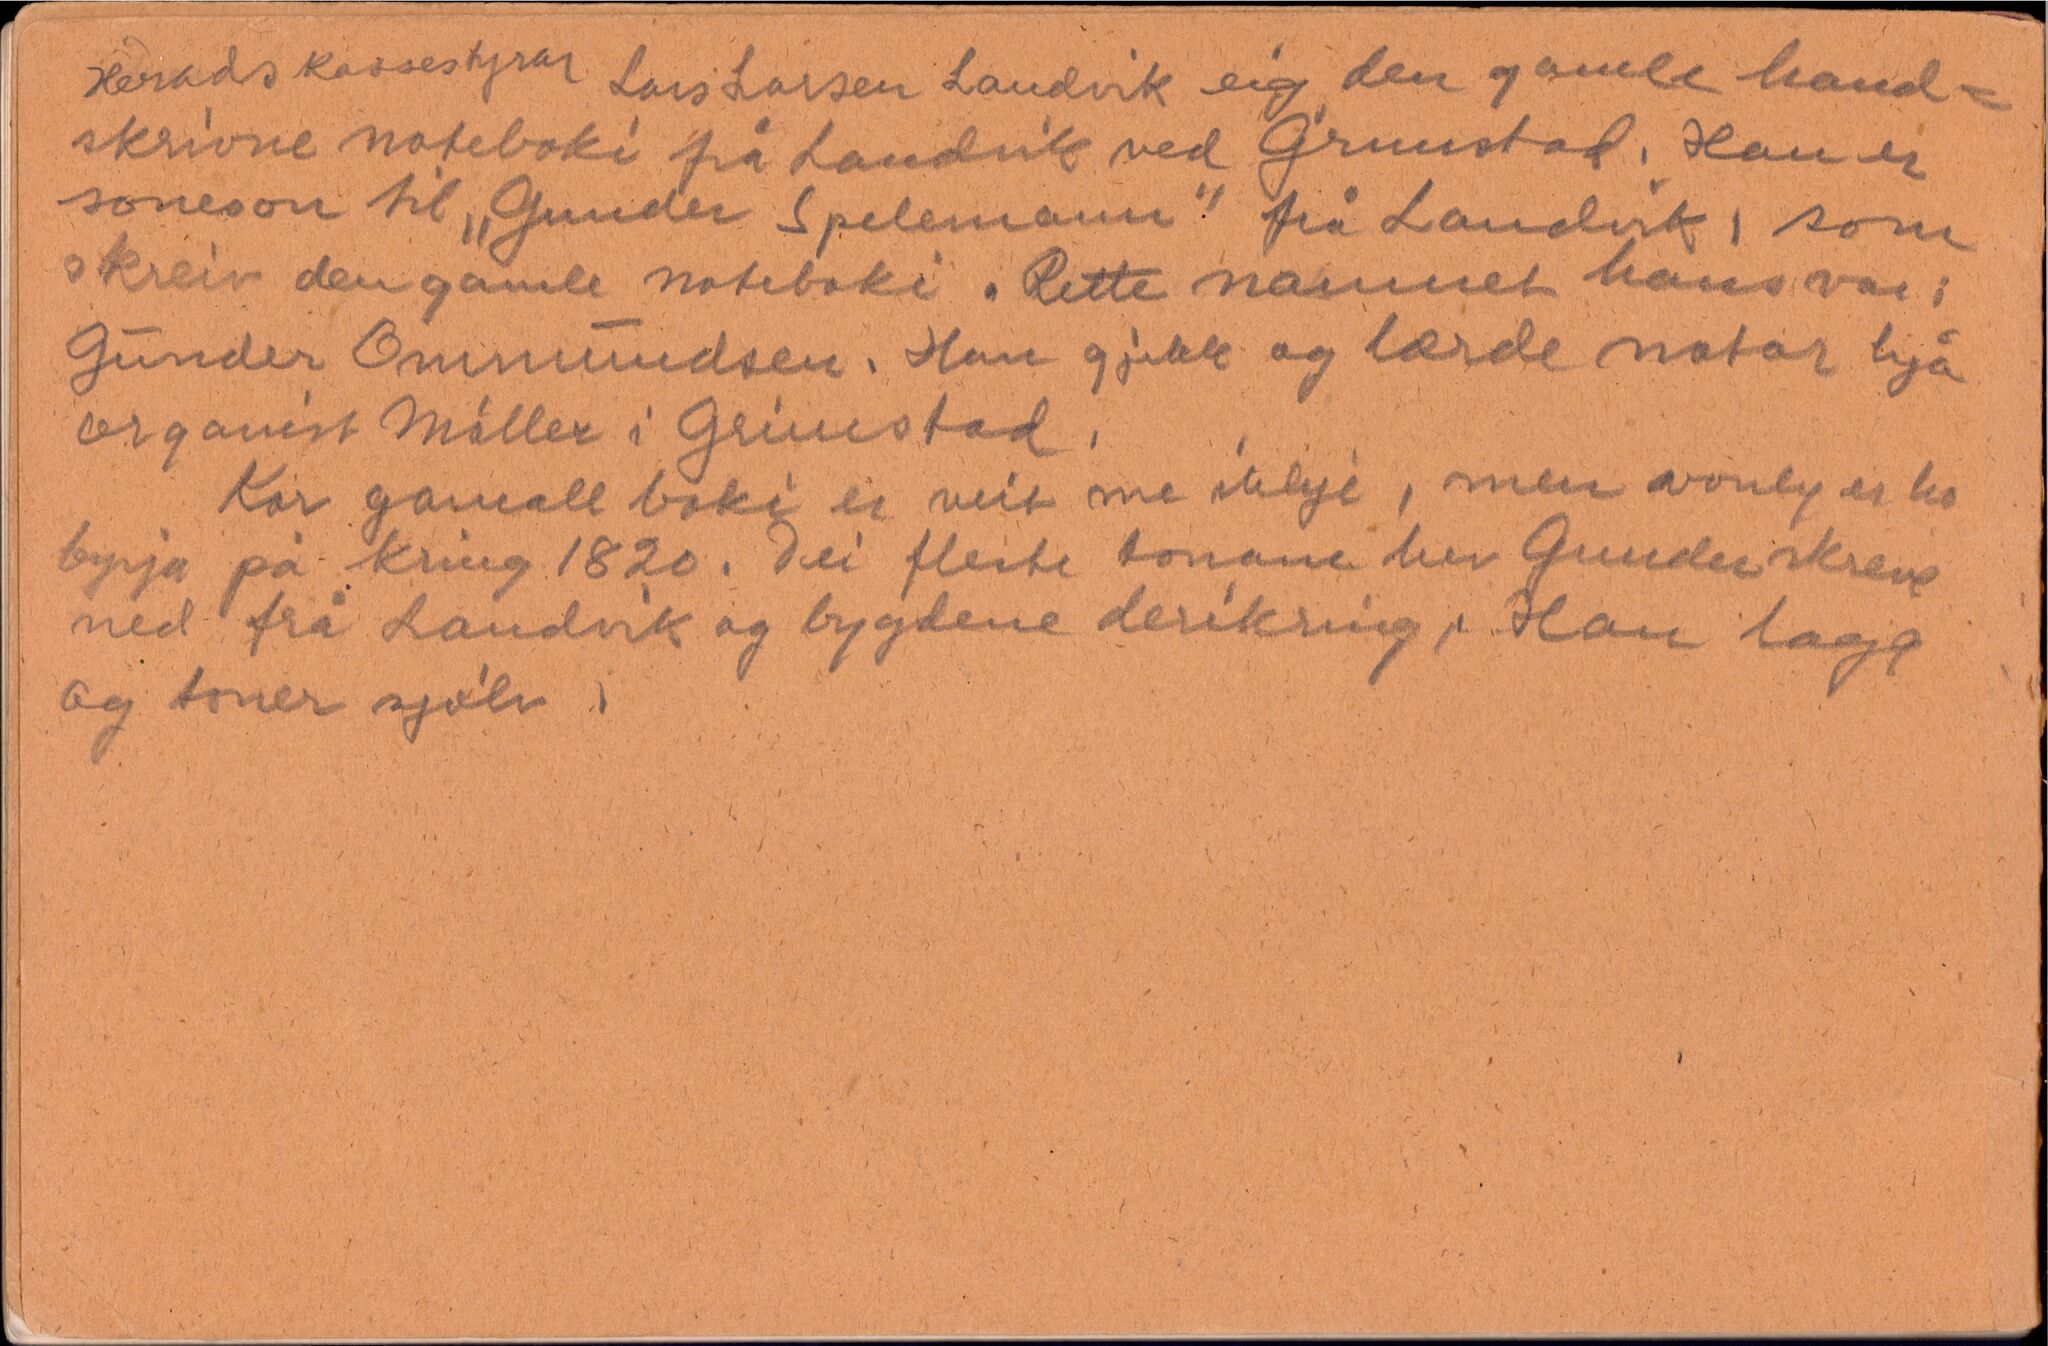 Heradskassestyrar Lars Larsen Landvik eig den gamle hand-
skrivne noteboki på Landvik ved Grimstad. Han er
soneson til „Gunder Spelemann" frå Landvik, som
skreiv den gamle noteboki. Rette namnet hans var:
Gunder Ommundsen. Han gjekk og lærde notar hjå
organist Møller i Grimstad.
Kor gamall boki er veit me ikkje, men vonleg er ho
byrja på kring 1820. Dei fleste tonane hev Gunder skreve
ned frå Landvik og bygdene derikring. Han laga
og toner sjølv.